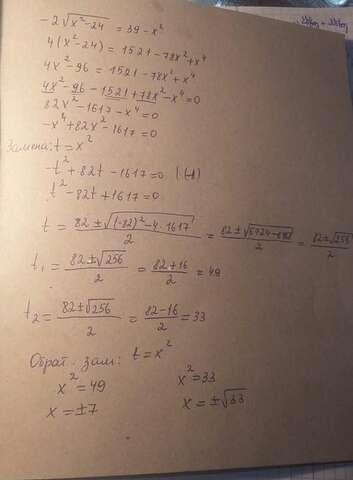 -2√(x²-24) = 39 - x²
4(x²-24) = 1521 - 78x² + x⁴
4x² - 96 = 1521 - 78x² + x⁴
4x² - 96 - 1521 + 78x² - x⁴ = 0
82x² - 1617 - x⁴ = 0
-x⁴ + 82x² - 1617 = 0
Замена: t = x²
-t² + 82t - 1617 = 0 | (-1)
t² - 82t + 1617 = 0
t = (82 ± √((-82)² - 4·1617))/2 = (82 ± √(6724 - 6468))/2 = (82 ± √256)/2
t₁ = (82 ± √256)/2 = (82 + 16)/2 = 49
t₂ = (82 ± √256)/2 = (82 - 16)/2 = 33
Обрат. зам: t = x²
x² = 49 x² = 33
x = ±7 x = ±√33